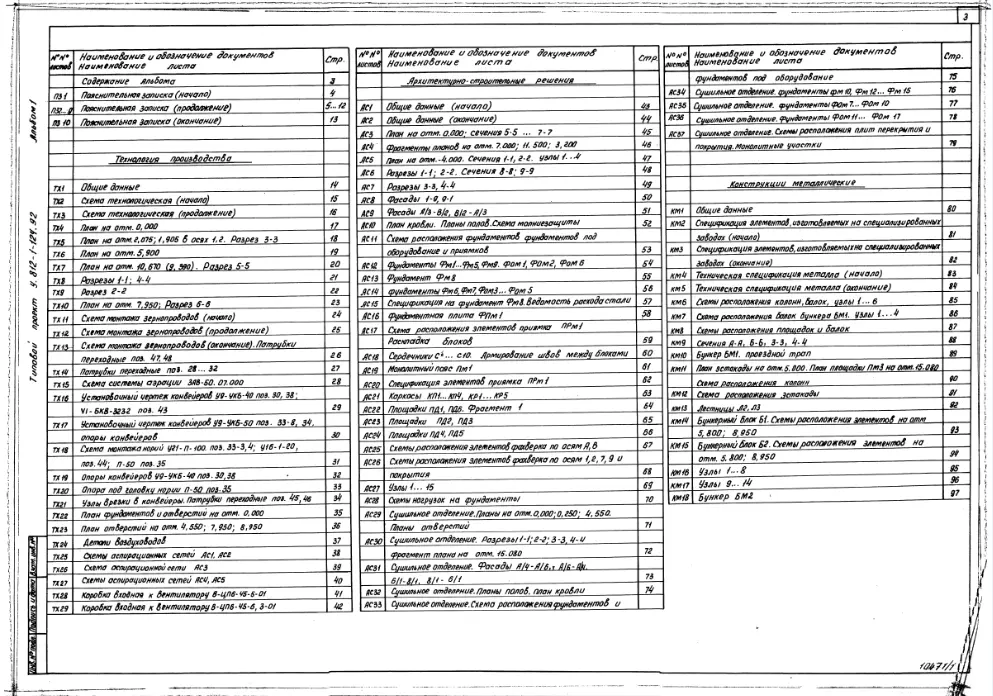 3
Альбом I
Типовой проект У.812-1-124.92
N°N° листов
Наименование и обозначение документов
Наименование листа
Стр.
Содержание Альбома 3
ПЗ 1 Пояснительная записка (начало) 4
Пояснительная записка (продолжение) 5...12
ПЗ 10 Пояснительная записка (окончание) 13
Технология производства
ТХ1 Общие данные 14
ТХ2 Схема технологическая (начало) 15
ТХ3 Схема технологическая (продолжение) 16
ТХ4 План на отм. 0,000 17
ТХ5 План на отм. 2,075; 1,906 в осях 1.2. Разрез 3-3 18
ТХ6 План на отм. 5,900 19
ТХ7 План на отм. 10,670 (9,390). Разрез 5-5 20
ТХ8 Разрезы 1-1; 4-4 21
ТХ9 Разрез 2-2 22
ТХ10 План на отм. 7,950; Разрез 6-6 23
ТХ11 Схема монтажа зернопроводов (начало) 24
ТХ12 Схема монтажа зернопроводов (продолжение) 25
ТХ13 Схема монтажа зернопроводов (окончание). Патрубки
переходные поз. 47,48 26
ТХ14 Патрубки переходные поз. 28...32 27
ТХ15 Схема системы аэрации ЗАВ-50.01.000 28
ТХ16 Установочный чертеж конвейеров У9-УКБ-40 поз. 30, 38;
У1-БКВ-3232 поз. 43 29
ТХ17 Установочный чертеж конвейеров У9-УКБ-50 поз. 33-8, 34,
опоры конвейеров 30
ТХ18 Схема монтажа норий У21-П-100. поз. 33-3,4; У16-1-20,
поз. 44; П-50 поз. 35 31
ТХ19 Опоры конвейеров У9-УКБ-40 поз. 30,38 32
ТХ20 Опора под головку нории П-50 поз. 35 33
ТХ21 Узлы врезки в конвейеры. Патрубки переходные поз. 45,46 34
ТХ22 План фундаментов и отверстий на отм. 0,000 35
ТХ23 План отверстий на отм. 4,550; 7,950; 8,950 36
ТХ24 Детали воздуховодов 37
ТХ25 Схемы аспирационных сетей АС1, АС2 38
ТХ26 Схема аспирационной сети АС3 39
ТХ27 Схемы аспирационных сетей АС4, АС5 40
ТХ28 Коробка входная к вентилятору В-ЦП6-45-6-01 41
ТХ29 Коробка входная к вентилятору В-ЦП6-45-6,3-01 42
N°N° листов
Наименование и обозначение документов
Наименование листа
Стр.
Архитектурно-строительные решения
АС1 Общие данные (начало) 43
АС2 Общие данные (окончание) 44
АС3 План на отм. 0.000; сечения 5-5 ... 7-7 45
АС4 Фрагменты планов на отм. 7.000; 11.500; 3,200 46
АС5 План на отм. -4.000. Сечения 1-1, 2-2. Узлы 1...4 47
АС6 Разрезы 1-1; 2-2. Сечения 8-8; 9-9 48
АС7 Разрезы 3-3, 4-4 49
АС8 Фасады 1-9, 9-1 50
АС9 Фасады А/3-В/2, В/2-А/3 51
АС10 План кровли. Планы полов. Схема молниезащиты 52
АС11 Схема расположения фундаментов фундаментов под
оборудование и приямков 53
АС12 Фундаменты Фм1...Фм5, Фм9. Фом1, ФОМ2, Фом 6 54
АС13 Фундамент Фм8 55
АС14 Фундаменты Фм6, Фм7, Фом3... Фом 5 56
АС15 Спецификация на фундамент Фм8. Ведомость расхода стали 57
АС16 Фундаментная плита ФПм1 58
АС17 Схема расположения элементов приямка ПРм1
Раскладка блоков 59
АС18 Сердечники С1... С10. Армирование швов между блоками 60
АС19 Монолитный пояс Пм1 61
АС20 Спецификация элементов приямка ПРм1 62
АС21 Каркасы КП1...КП4, КР1...КР5 63
АС22 Площадки ПД1, ПД5. Фрагмент 1 64
АС23 Площадки ПД2, ПД3 65
АС24 Площадки ПД4, ПД5 66
АС25 Схемы расположения элементов фахверка по осям А,В 67
АС26 Схемы расположения элементов фахверка по осям 1,2,7,9 и
покрытия 68
АС27 Узлы 1... 15 69
АС28 Схемы нагрузок на фундаменты 70
АС29 Сушильное отделение. Планы на отм. 0,000; 0,250; 4.550.
Планы отверстий 71
АС30 Сушильное отделение. Разрезы 1-1; 2-2; 3-3, 4-4
фрагмент плана на отм. 15.080 72
АС31 Сушильное отделение. Фасады А/4-А/6, А/6-А/4,
6/1-8/1, 8/1-6/1 73
АС32 Сушильное отделение. Планы полов, план кровли 74
АС33 Сушильное отделение. Схема расположения фундаментов и
N°N° листов
Наименование и обозначение документов
Наименование листа
Стр.
фундаментов под оборудование 75
АС34 Сушильное отделение. фундаменты фм 10, Фм 12... Фм 15 76
АС35 Сушильное отделение. фундаменты Фом 7... Фом 10 77
АС36 Сушильное отделение. фундаменты Фом 11... Фом 17 78
АС37 Сушильное отделение. Схемы расположения плит перекрытия и
покрытия. Монолитные участки 79
Конструкции металлические
КМ1 Общие данные 80
КМ2 Спецификация элементов, изготовляемых на специализированных
заводах (начало) 81
КМ3 Спецификация элементов, изготовляемых на специализированных
заводах (окончание) 82
КМ4 Техническая спецификация металла (начало) 83
КМ5 Техническая спецификация металла (окончание) 84
КМ6 Схемы расположения колонн, балок, узлы 1...6 85
КМ7 Схема расположения балок бункера БМ1. Узлы 1...4 86
КМ8 Схемы расположения площадок и балок 87
КМ9 Сечения А-А, Б-Б, 3-3, 4-4 88
КМ10 Бункер БМ1. проездной трап 89
КМ11 План эстакады на отм. 5.800. План площадки Пм3 на отм. 15.080
Схема расположения колонн 90
КМ12 Схема расположения эстакады 91
КМ13 Лестницы Л2, Л3 92
КМ14 Бункерный блок Б1. Схемы расположения элементов на отм
5,800; 8,950 93
КМ15 Бункерный блок Б2. Схемы расположения элементов на
отм. 5.800; 8,950 94
КМ16 Узлы 1...8 95
КМ17 Узлы 9... 14 96
КМ18 Бункер БМ2 97
Инв. № подл. Подпись и дата Взам. инв. №
10471/1